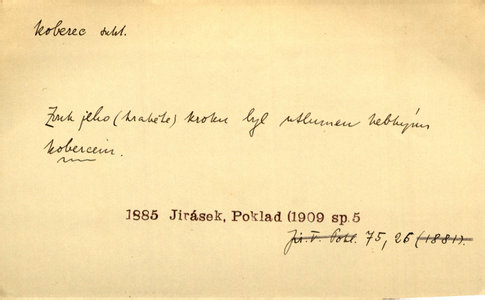 koberec subst.
Zvuk jeho (hraběte) kroku byl utlumen hebkým
kobercem.
1885 Jirásek, Poklad (1909 sp.5
Jir. V. Pokl. 75, 26 (1881).